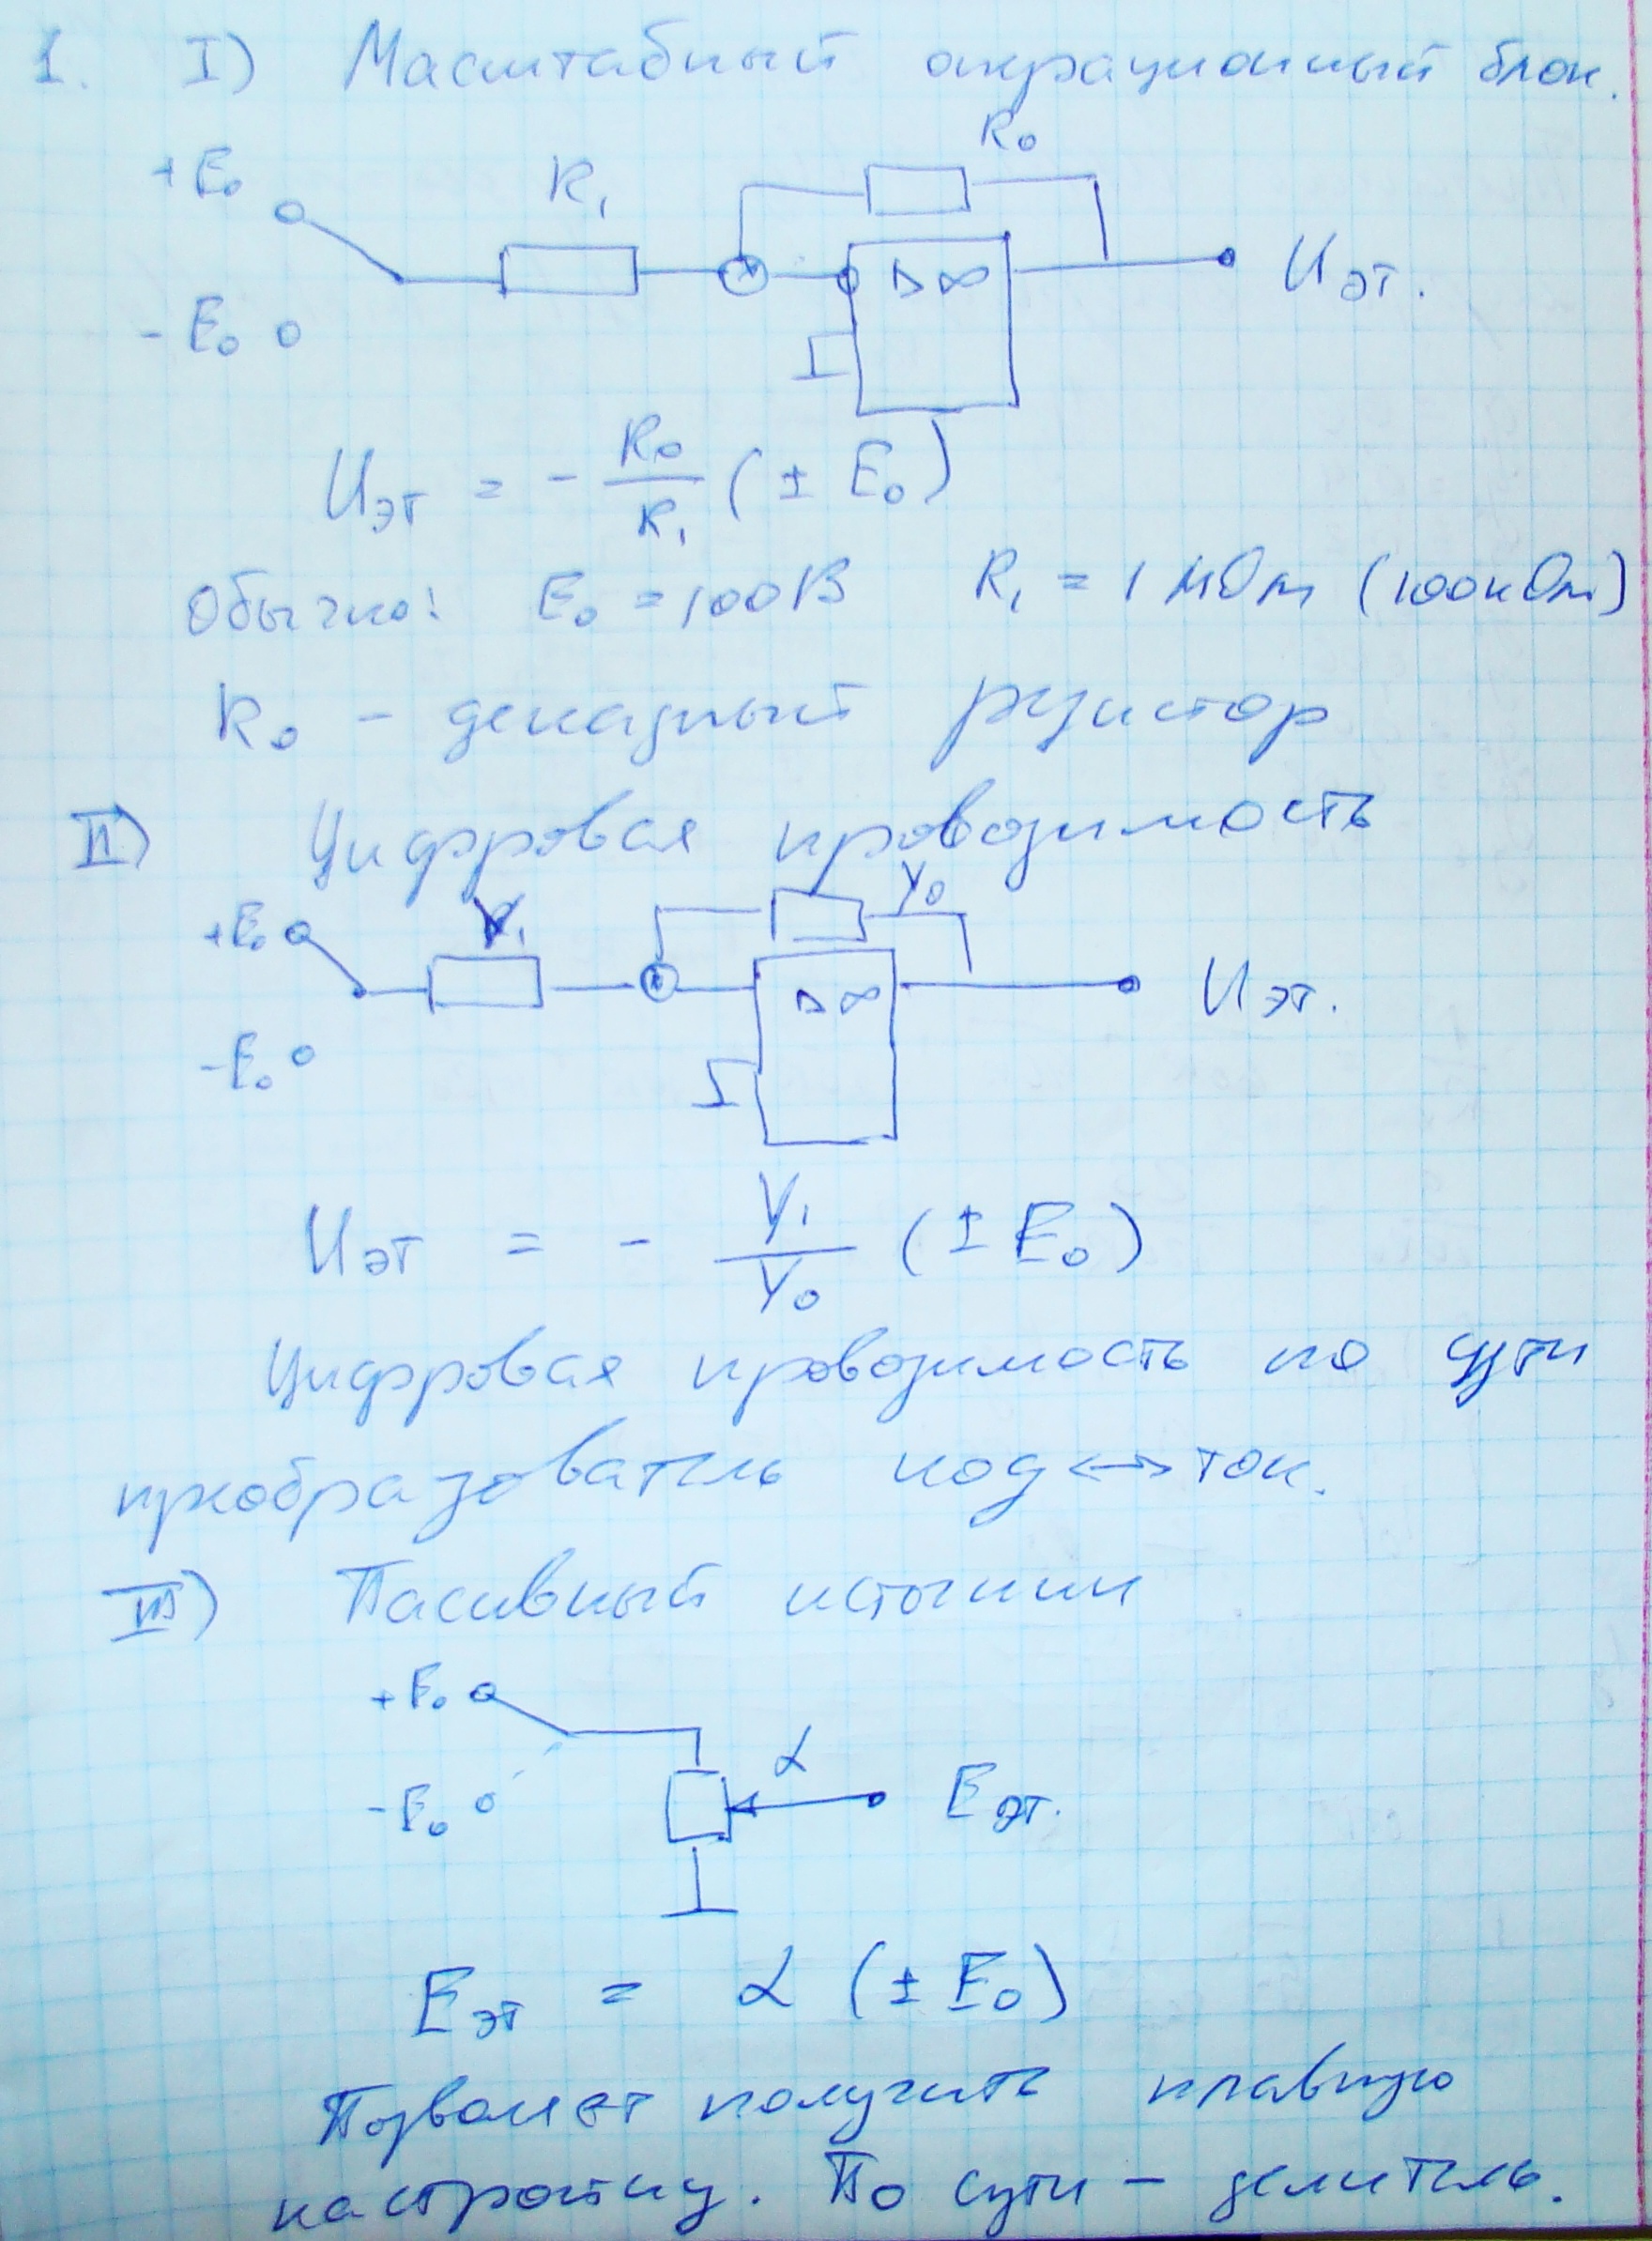 1. I) Масштабный операционный блок.
R₀
+E₀ R₁
▷ ∞ Uэт.
- E₀
Uэт = - R₀/R₁ (± E₀)
Обычно: E₀ = 100В R₁ = 1 МОм (100кОм)
R₀ - декадный резистор
II) Цифровая проводимость
Y₀
+E₀ Y₁
▷ ∞ Uэт.
-E₀
Uэт = - Y₁/Y₀ (± E₀)
Цифровая проводимость по сути
преобразователь код ↔ ток.
III) Пасивный источник
+E₀
α
-E₀ Eэт.
Eэт = α (± E₀)
Позволяет получить плавную
настройку. По сути - делитель.